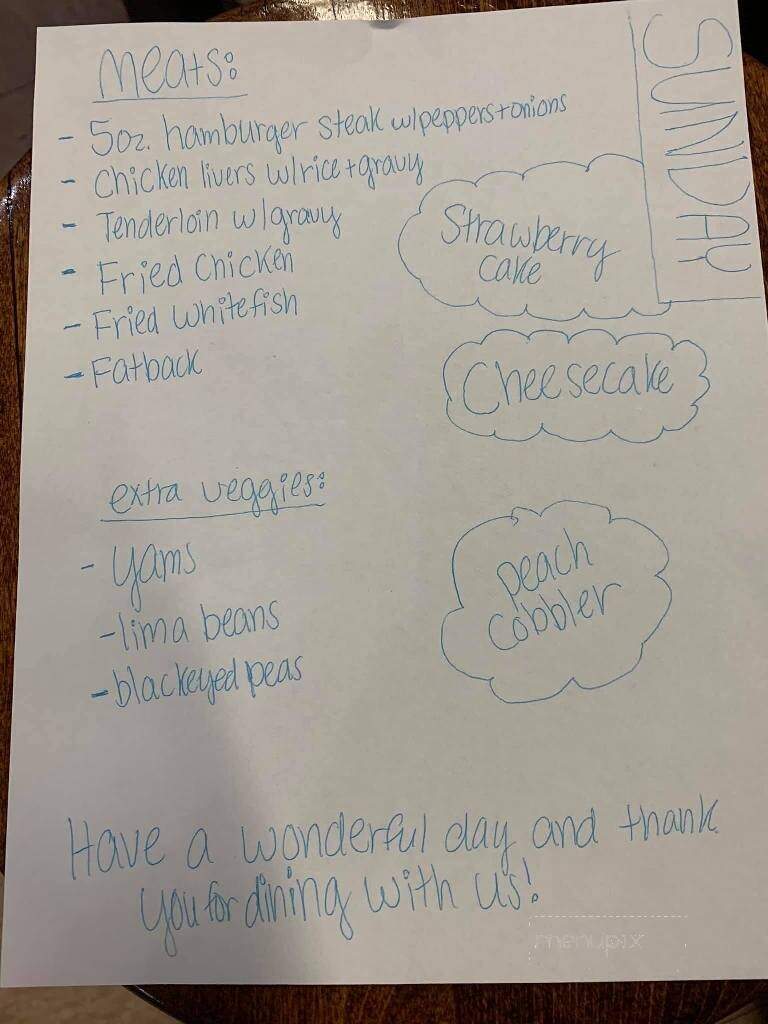 SUNDAY
Meats:
- 5oz. hamburger steak w/peppers+onions
- Chicken livers w/rice+gravy
- Tenderloin w/gravy
- Fried Chicken
- Fried Whitefish
- Fatback
Strawberry
cake
Cheesecake
extra veggies:
- yams
- lima beans
- blackeyed peas
peach
cobbler
Have a wonderful day and thank
you for dining with us!
menupix